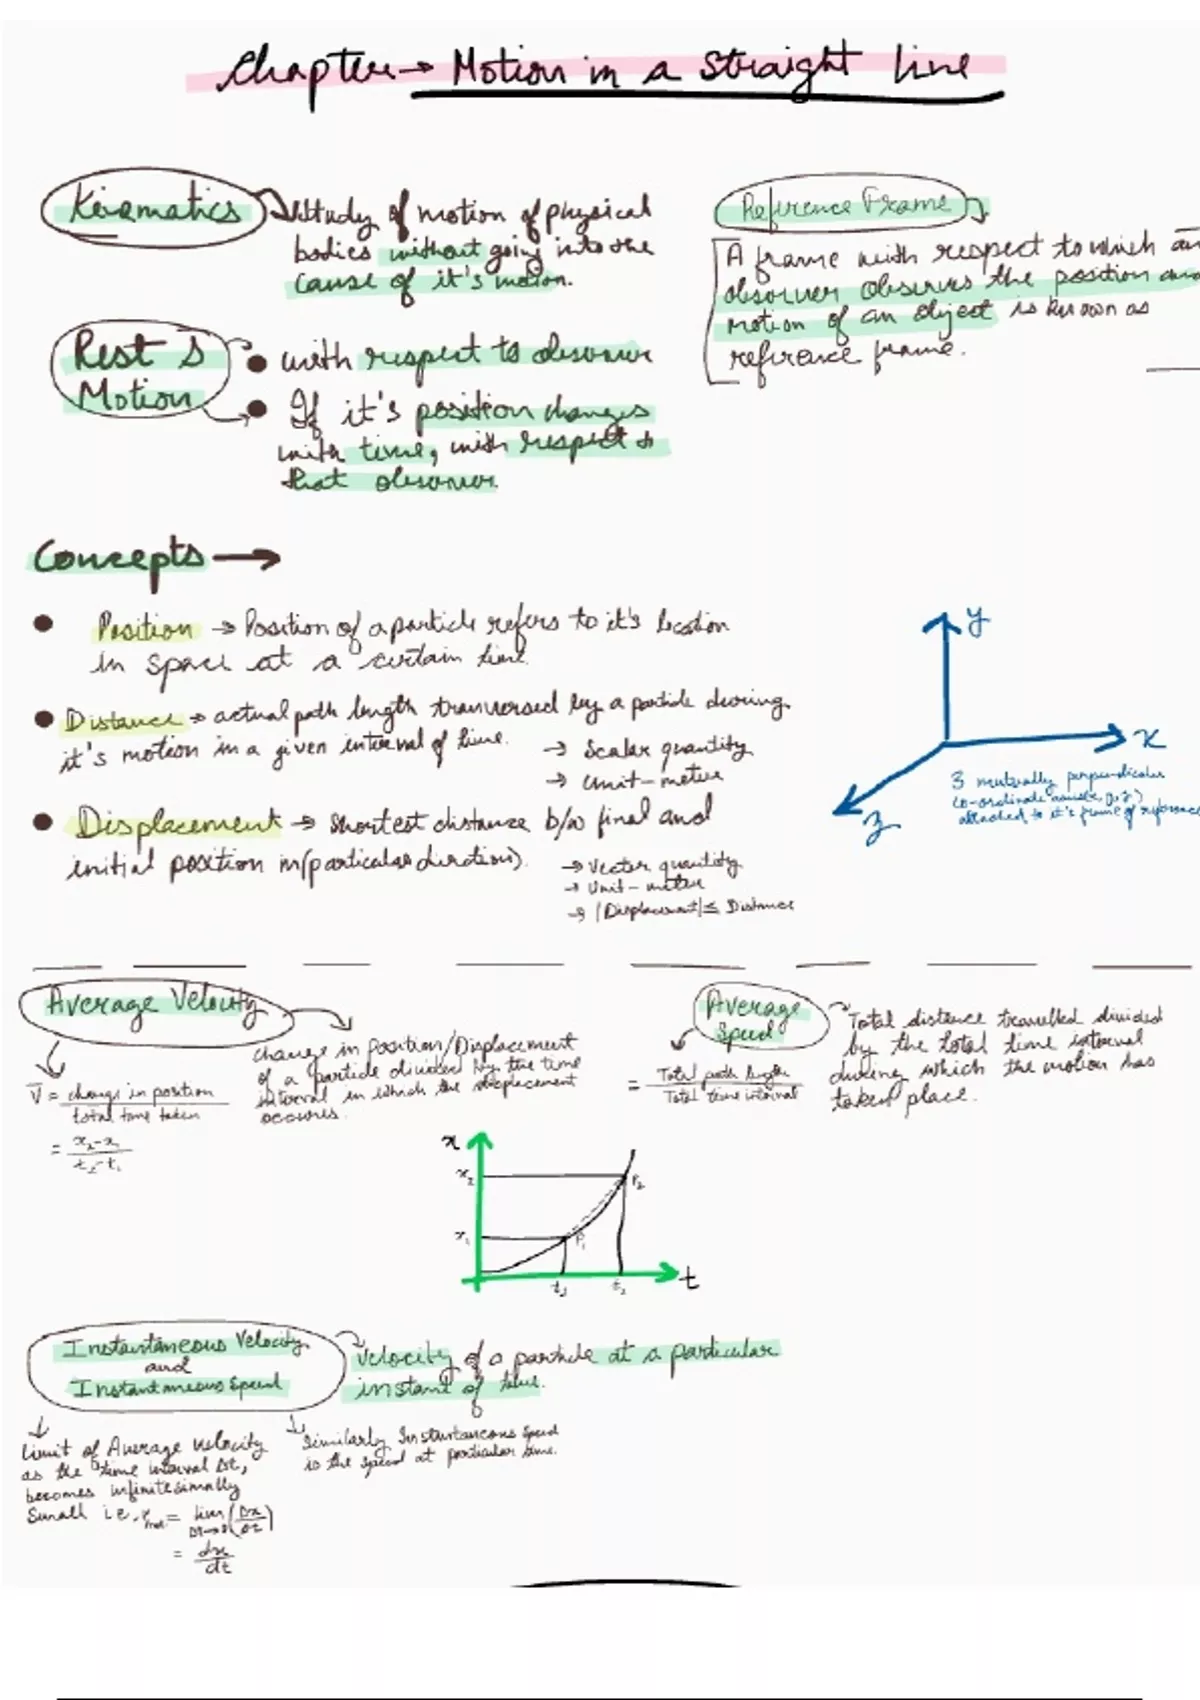 Chapter → Motion in a Straight line
Kinematics
Study of motion of physical
bodies without going into the
cause of it's motion.
Reference Frame
A frame with respect to which an
observer observes the position and
motion of an object is known as
reference frame.
Rest &
Motion
with respect to observer
If it's position changes
with time, with respect to
that observer.
Concepts →
Position → Position of a particle refers to it's location
in space at a certain time.
Distance → actual path length transversed by a particle during
it's motion in a given interval of time.
→ Scalar quantity
→ Unit - metre
Displacement → Shortest distance b/w final and
initial position in (particular direction).
→ Vector quantity
→ Unit - metre
→ |Displacement| ≤ Distance
y
x
z
3 mutually perpendicular
co-ordinate
attached to it's frame of reference
Average Velocity
Change in position/Displacement
of a particle divided by the time
interval in which the displacement
occurs.
V = change in position / total time taken
= x₂-x₁ / t₂-t₁
Average
Speed
Total distance travelled divided
by the total time interval
during which the motion has
taken place.
= Total path length / Total time interval
x
x₂
x₁
P₂
P₁
t₁
t₂
t
Instantaneous Velocity
and
Instantaneous Speed
Velocity of a particle at a particular
instant of time.
Limit of Average velocity
as the time interval Δt,
becomes infinitesimally
Small i.e. = lim Δt→0 (Δx/Δt)
= dx/dt
Similarly Instantaneous Speed
is the speed at particular time.